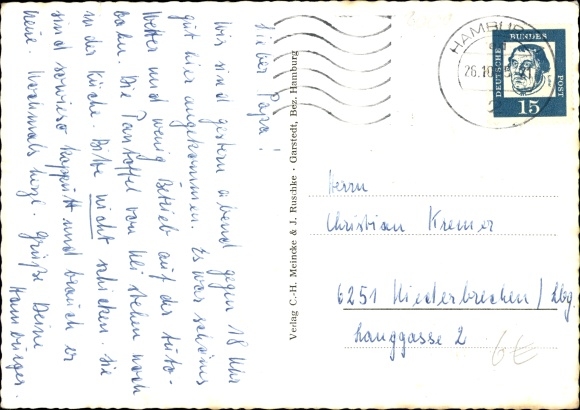 Lieber Papa!
Wir sind gestern abend gegen 18 Uhr
gut hier angekommen. Es war schönes
Wetter und wenig Betrieb auf der Auto-
bahn. Die Pantoffel von stehen noch
in der Küche. Bitte nicht schicken. Sie
sind sowieso kaputt und braucht er
keine. Nochmals herzl. Grüße Deine
Hamburger.
Verlag C.-H. Meincke & J. Ruschke · Garstedt, Bez. Hamburg
HAMBURG
26.10.
2
DEUTSCHE
BUNDES
POST
15
Herrn
Christian Kremer
6251 Niederbrechen / Lbg.
Langgasse 2
6€